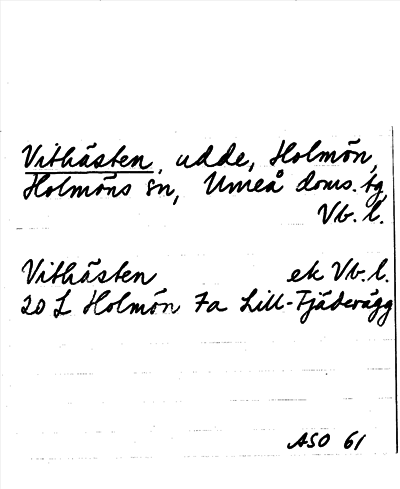 Vithästen, udde, Holmön,
Holmöns sn, Umeå doms. tg,
Vb. l.
Vithästen ek Vb. l.
20 L Holmön 7a Lill-Tjäderägg
ASO 61